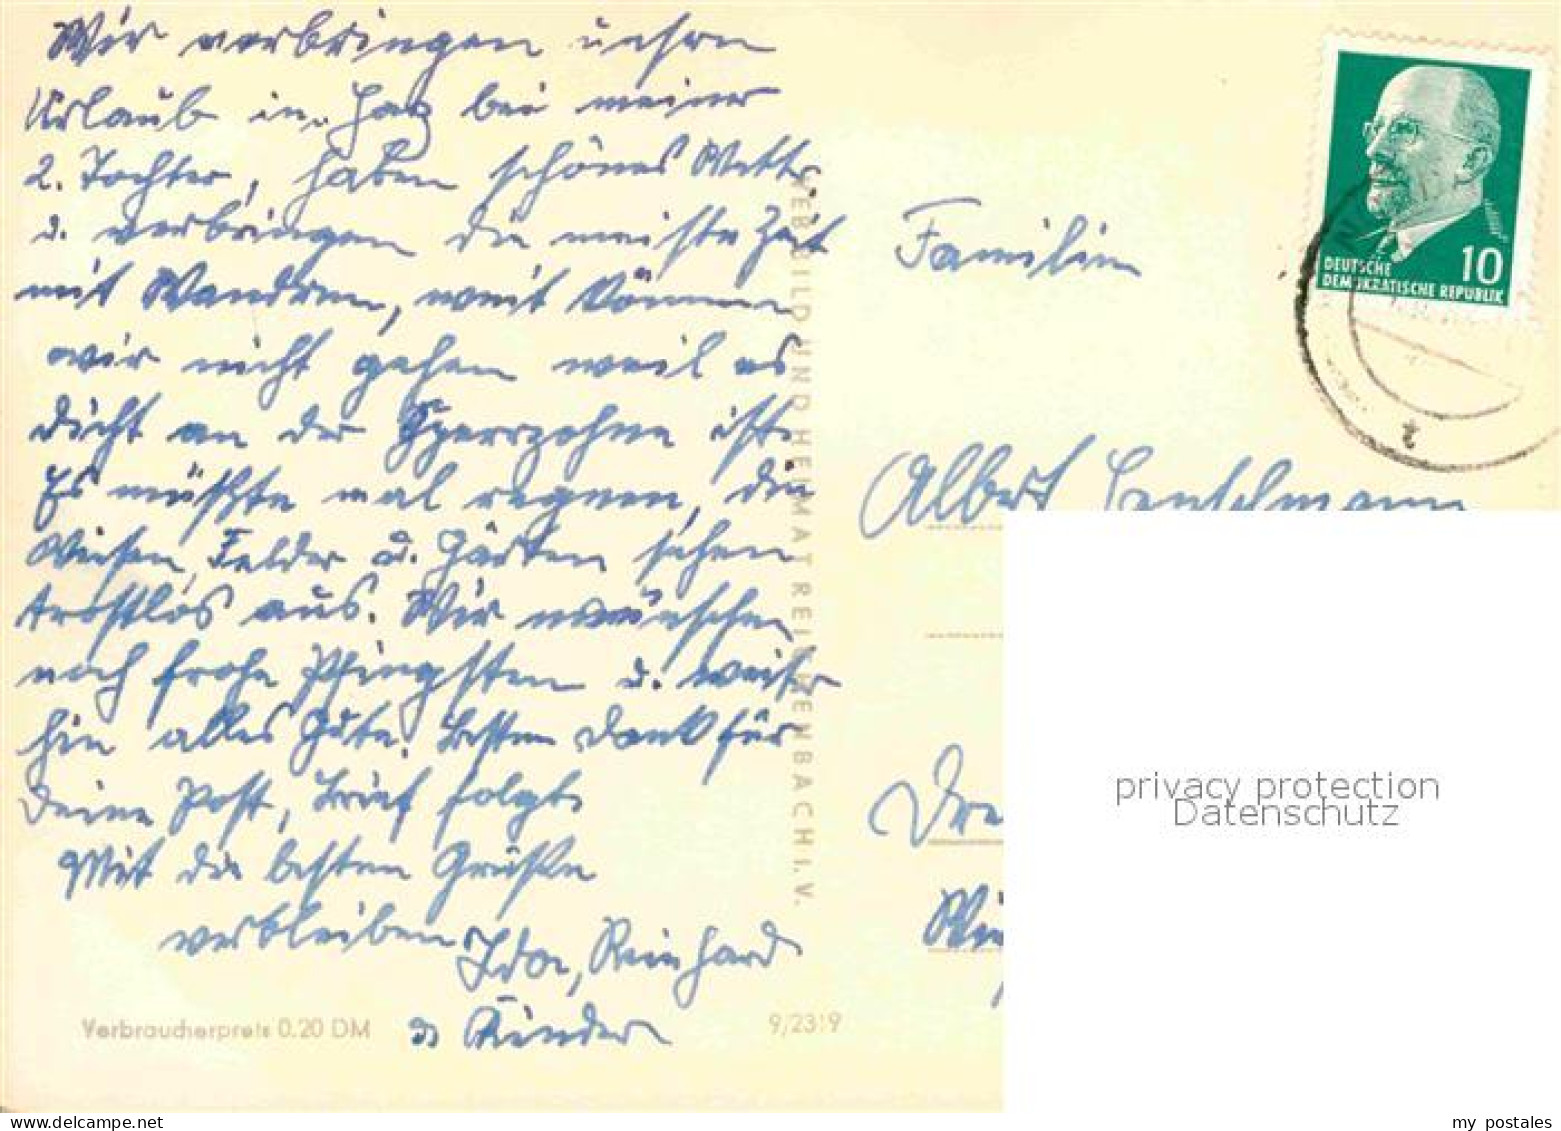 Wir verbringen unsern
Urlaub im Harz bei meiner
2. Tochter, haben schönes Wettr.
u. verbringen die meiste Zeit
mit Wandern, weit können
wir nicht gehen weil es
dicht an der Sperrzohne ist.
Es müßte mal regnen, die
Wiesen, Felder u. Gärten sehen
trostlos aus. Wir wünschen
noch frohe Pfingsten u. weiter
hin alles Gute. Besten Dank für
Deine Post, Brief folgt.
Mit die besten Grüßen
verbleiben Ida, Reinhard
u. Kinder
Verbraucherpreis 0.20 DM
9/2319
VEB BILD UND HEIMAT REICHENBACH I. V.
DEUTSCHE
DEMOKRATISCHE REPUBLIK
10
Familie
Albert
Dre
privacy protection
Datenschutz
my postales